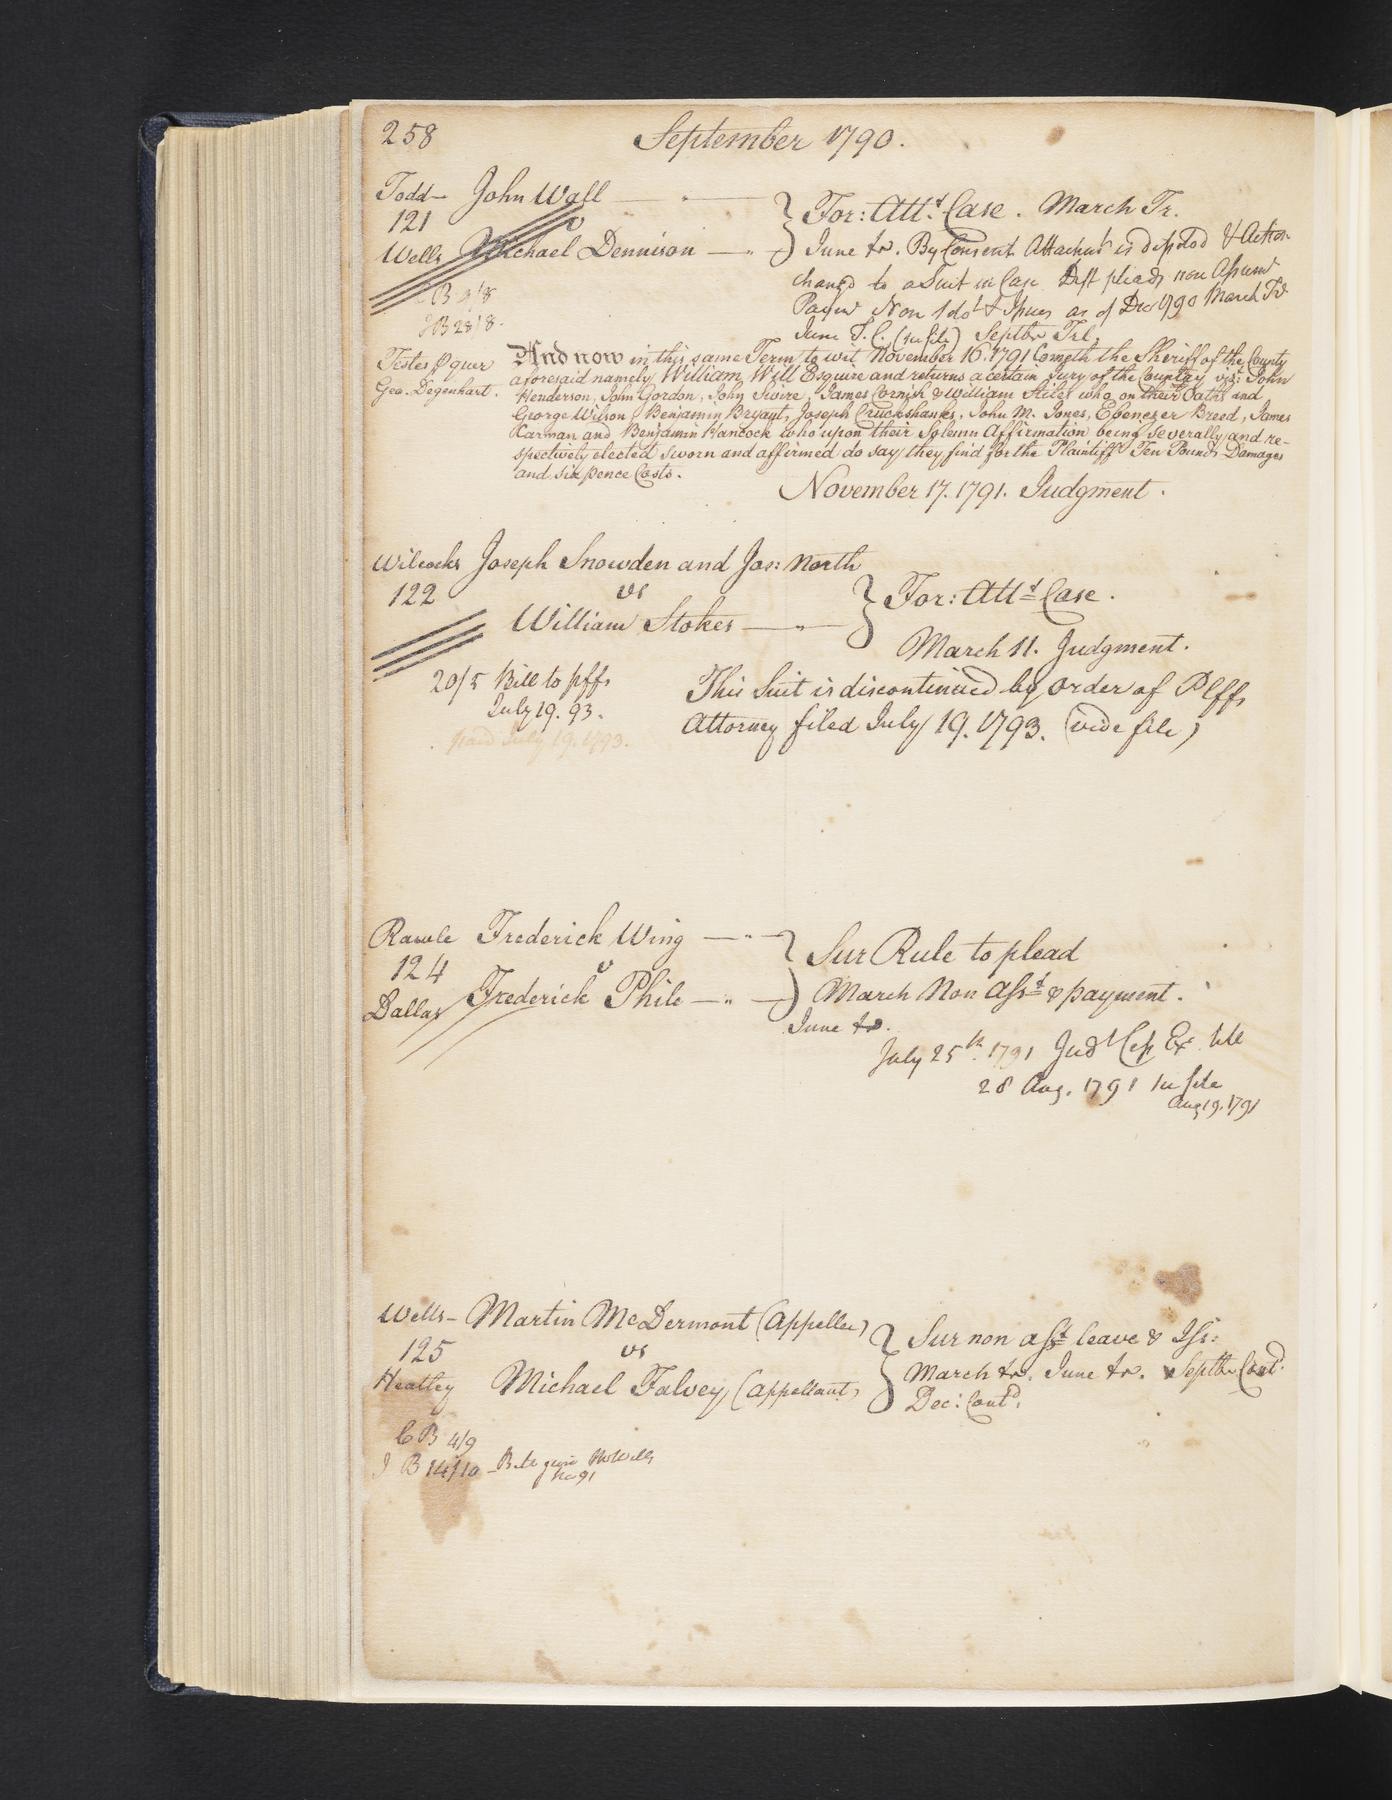 258 September 1790.
Todd — John Wall
121 v
Wells Michael Dennison
For: Attt. Case. March Tr.
June tr. By Consent Attachmt is & Action
changd to a Suit in Case Deft pleads non Assumt
Paymt Non Sol & Issues as of Decr 1790 March Tr
June T. C. (see file) Septbr Trl,
B 9/8
JB 28/8.
Testes p quer
Geo. Degenhart.
And now in this same Term to wit November 16. 1791 Cometh the Sheriff of the County
aforesaid namely William Will Esquire and returns a certain Jury of the Country vizt: John
Henderson, John Gordon, John Swire, James Cornish & William Stiles who on their Oaths and
George Wilson, Benjamin Bryant, Joseph Cruckshanks, John M. Jones, Ebenezer Breed, James
Karman and Benjamin Hancock who upon their Solemn Affirmation being severally and re-
spectively elected sworn and affirmed do say they find for the Plaintiff Ten Pounds Damages
and six pence Costs.
November 17. 1791. Judgment.
Wilcocks Joseph Snowden and Jos: North
122 vs
William Stokes
For: Attt Case.
March 11. Judgment.
20/5 Bill to plffs
July 19. 93.
paid July 19. 1793.
This Suit is discontinued by order of Plffs
Attorney filed July 19. 1793. (vide file)
Rawle Frederick Wing
124 v
Dallas Frederick Phile
Sur Rule to plead
March Non Asst & payment.
June tr.
July 25th. 1791 Judt Cep Ex
28 Aug. 1791 in file
Aug 19. 1791
Wells — Martin McDermont (Appellee)
125 vs
Heatley Michael Falvey (appellant)
Sur non asst leave & Iss:
March tr. June tr. Septbr Contd.
Dec: Contd.
C B 4/9
J B 14/10